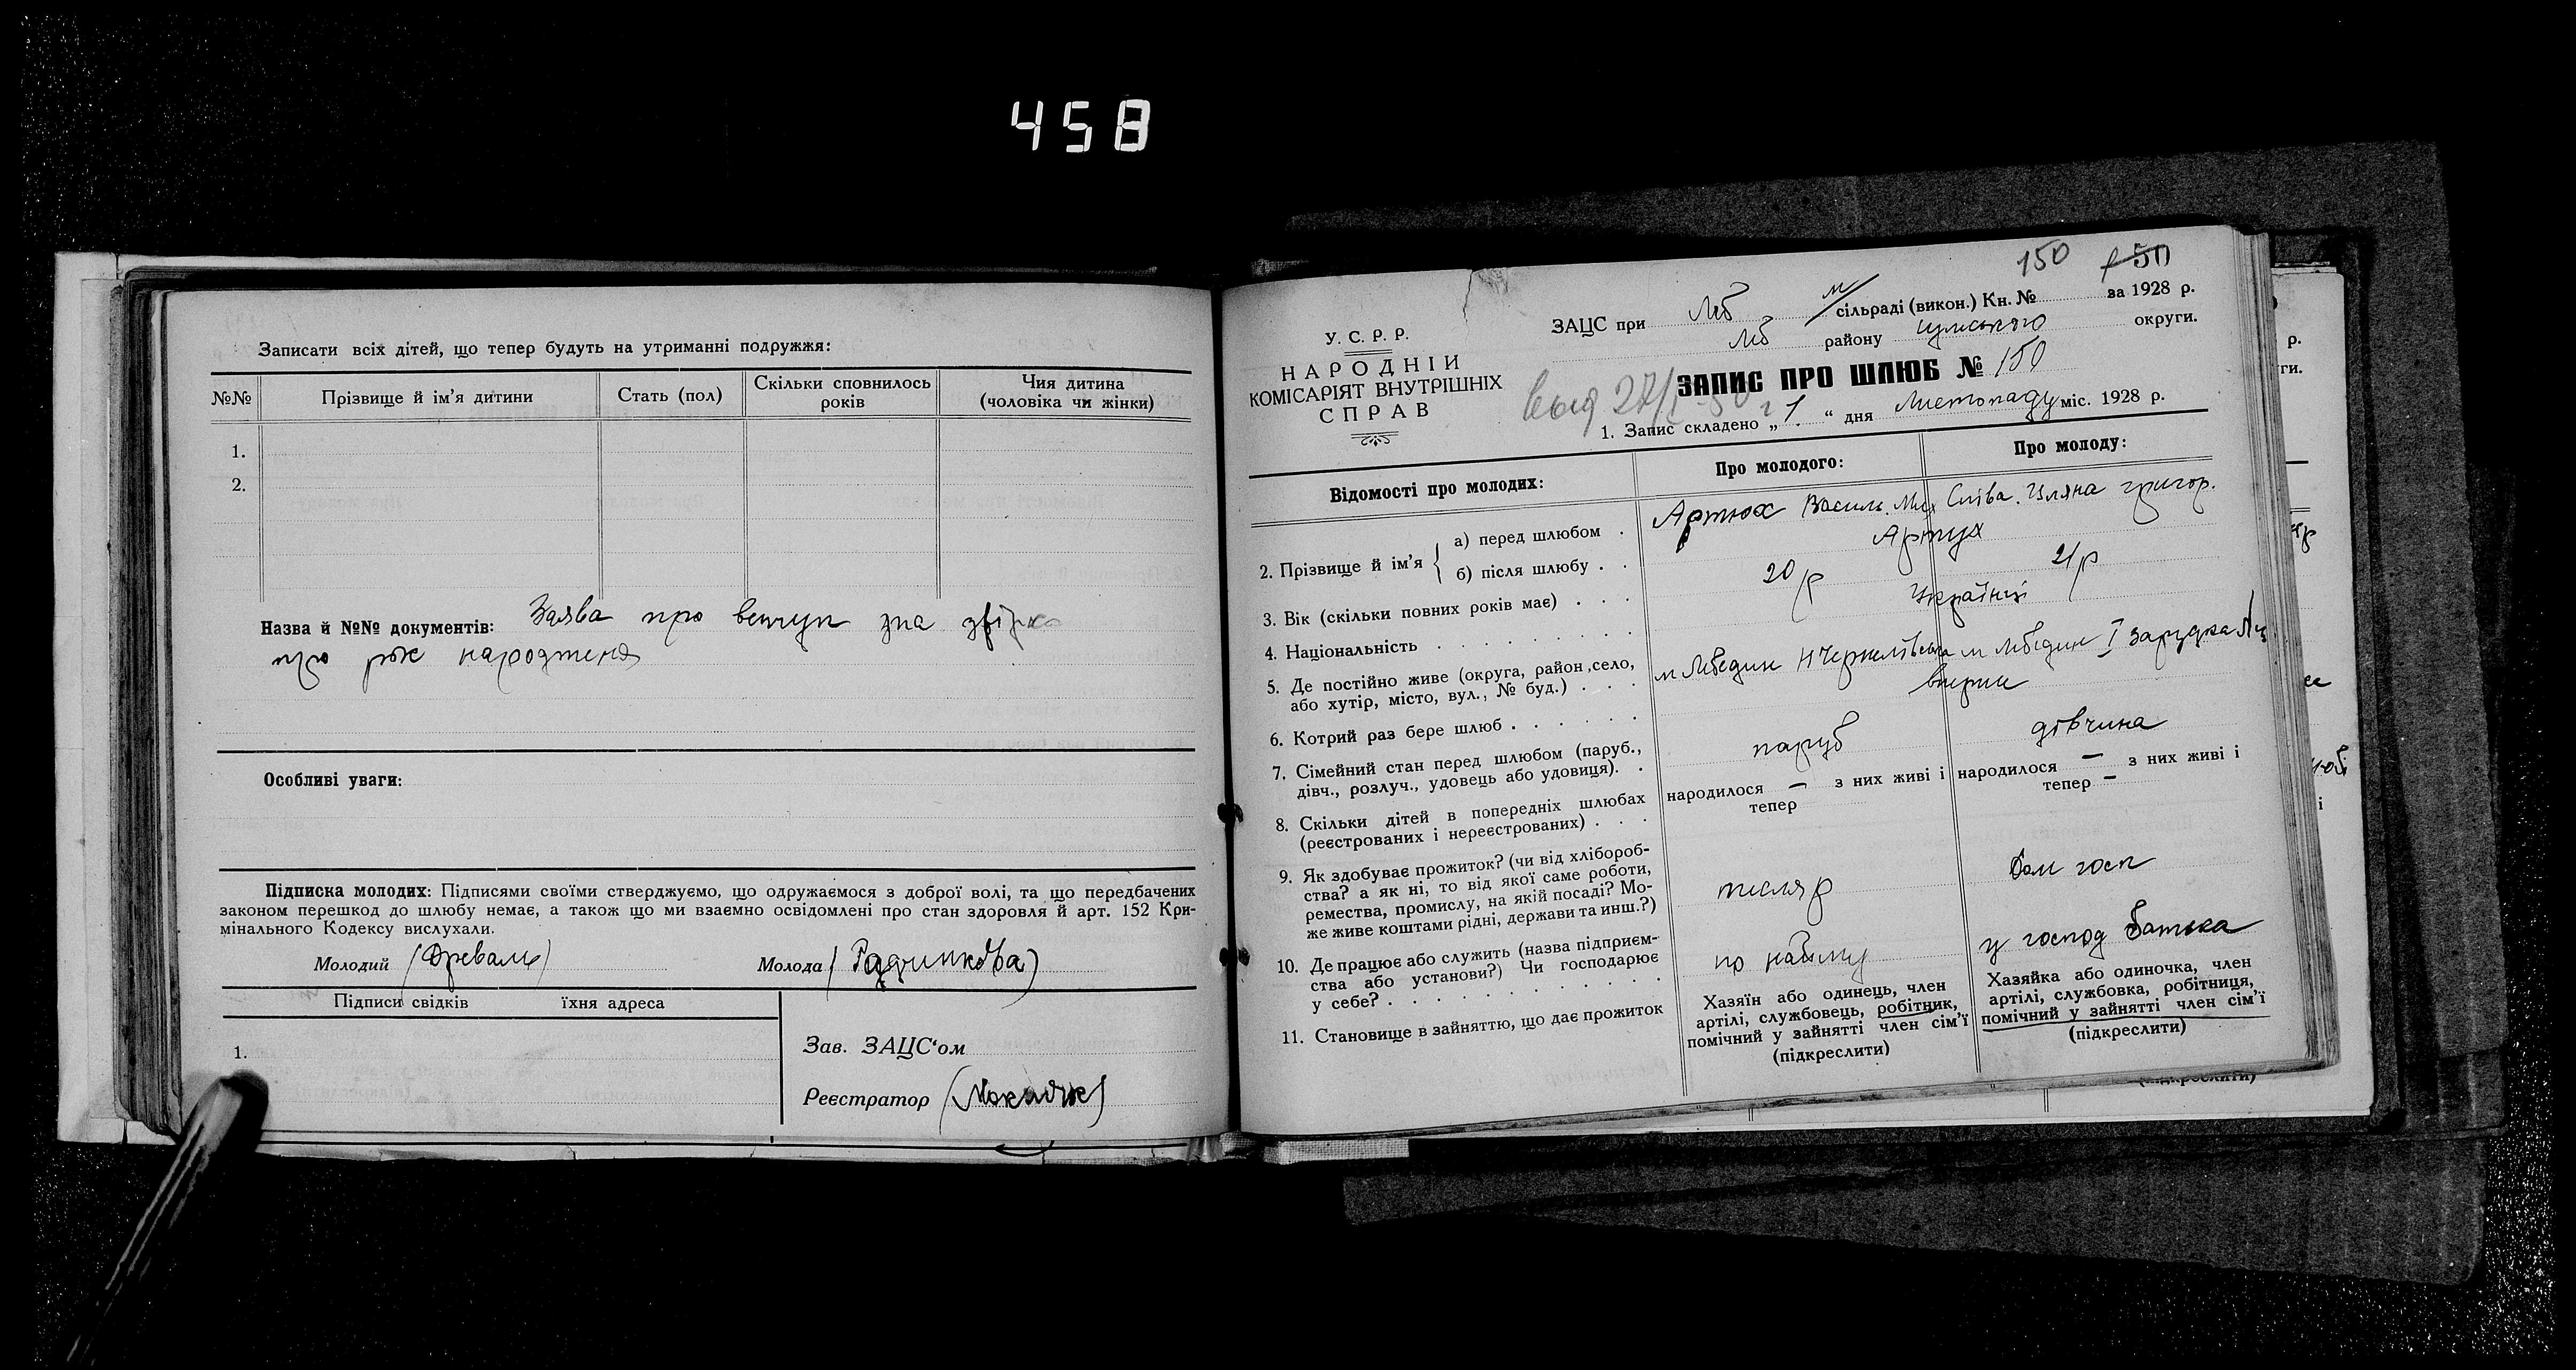 458
Записати всіх дітей, що тепер будуть на утриманні подружжя:
№№ Прізвище й ім'я дитини Стать (пол) Скільки сповнилось років Чия дитина (чоловіка чи жінки)
1.
2.
Назва й №№ документів: Заява про вступ
про рік народження
Особливі уваги:
Підписка молодих: Підписями своїми стверджуємо, що одружаємося з доброї волі, та що передбачених
законом перешкод до шлюбу немає, а також що ми взаємно освідомлені про стан здоровля й арт. 152 Кри-
мінального Кодексу вислухали.
Молодий (Древаль) Молода
Підписи свідків їхня адреса
1.
Зав. ЗАЦС'ом
Реєстратор
150 150
У. С. Р. Р.
НАРОДНІЙ
КОМІСАРІЯТ ВНУТРІШНІХ
СПРАВ
ЗАЦС при Леб м/сільраді (викон.) Кн. № за 1928 р.
Леб району Сумського округи.
ЗАПИС ПРО ШЛЮБ № 150
1. Запис складено „1." дня Листопаду міс. 1928 р.
Відомості про молодих: Про молодого: Про молоду:
2. Прізвище й ім'я { а) перед шлюбом . Артюх Василь Мих Сліва Уляна Григор.
б) після шлюбу . . Артух
3. Вік (скільки повних років має) . . . 20 р 21 р
4. Національність . . . . . . . . Українці
5. Де постійно живе (округа, район, село,
або хутір, місто, вул., № буд.) . . . м Лебедин м Лебедин I Зарудка
6. Котрий раз бере шлюб . . . . . . вперше
7. Сімейний стан перед шлюбом (паруб.,
дівч., розлуч., удовець або удовиця). . паруб дівчина
8. Скільки дітей в попередніх шлюбах
(реєстрованих і нереєстрованих) . . . народилося — з них живі і тепер народилося — з них живі і тепер —
9. Як здобуває прожиток? (чи від хлібороб-
ства? а як ні, то від якої саме роботи,
ремества, промислу, на якій посаді? Мо-
же живе коштами рідні, держави та инш.?) тесляр Дом госп
10. Де працює або служить (назва підприєм-
ства або установи?) Чи господарює
у себе? . . . . . . . . . . . по найму у господ батька
11. Становище в зайняттю, що дає прожиток
Хазяїн або одинець, член
артілі, службовець, робітник,
помічний у зайнятті член сім'ї
(підкреслити)
Хазяйка або одиночка, член
артілі, службовка, робітниця,
помічний у зайнятті член сім'ї
(підкреслити)